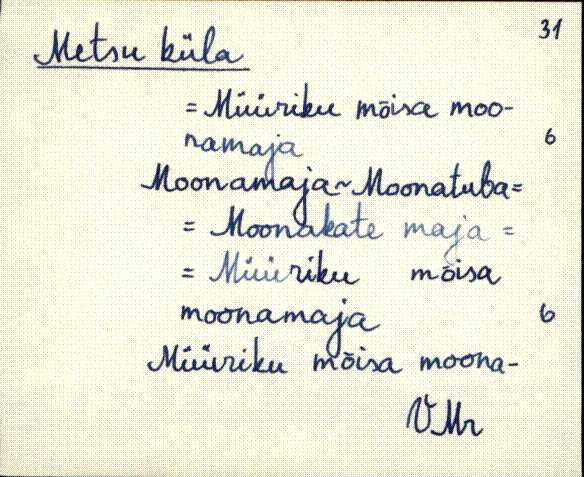 31
Metsu küla
= Müüriku mõisa moo-
namaja 6
Moonamaja ~ Moonatuba =
= Moonakate maja =
= Müüriku mõisa
moonamaja 6
Müüriku mõisa moona-
VMr